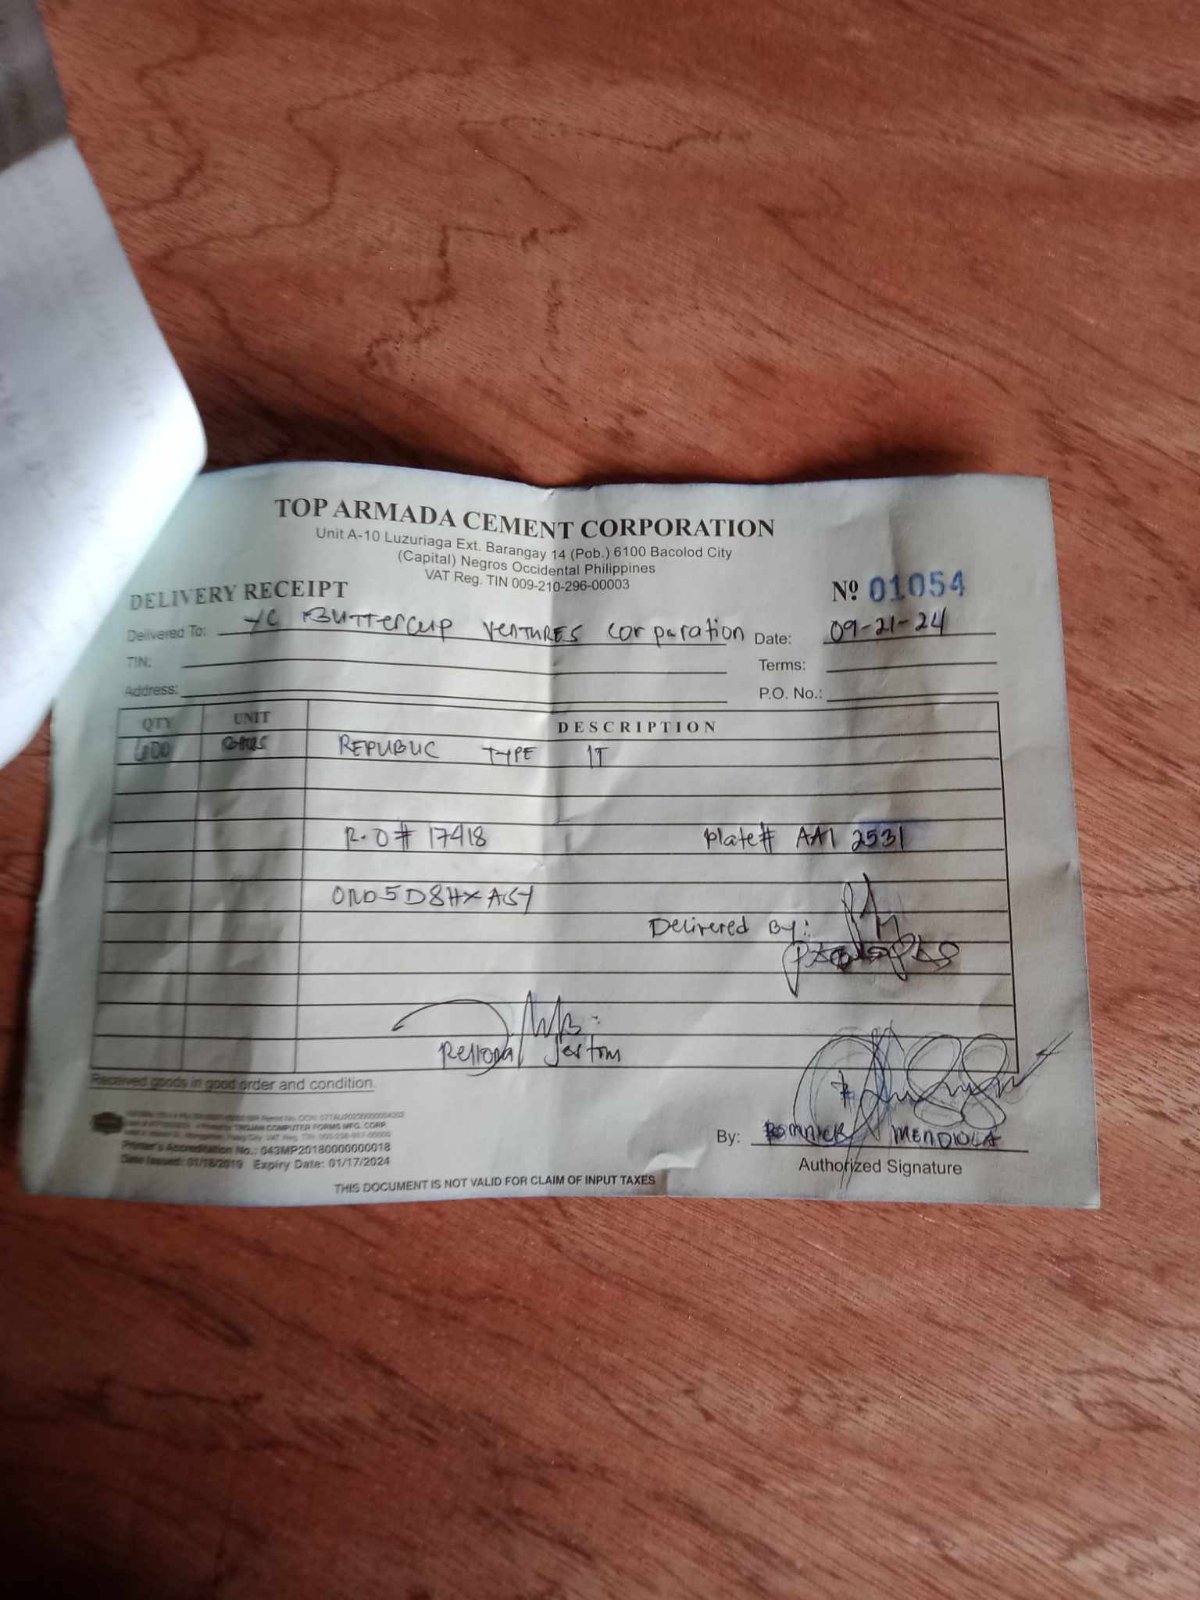 TOP ARMADA CEMENT CORPORATION
Unit A-10 Luzuriaga Ext. Barangay 14 (Pob.) 6100 Bacolod City
(Capital) Negros Occidental Philippines
VAT Reg. TIN 009-210-296-00003
DELIVERY RECEIPT Nº 01054
Delivered To: YC Buttercup VENTURES corporation Date: 09-21-24
TIN: Terms:
Address: P.O. No.:
QTY UNIT DESCRIPTION
600 REPUBLIC TYPE 1T
R.O# 17418 plate# AAI 2531
Delivered By:
Jestom
Received goods in good order and condition.
TROJAN COMPUTER FORMS MFG. CORP.
Printer's Accreditation No.: 043MP20180000000018
Date Issued: 01/18/2019 Expiry Date: 01/17/2024
By: ROMNICK MENDIOLA
Authorized Signature
THIS DOCUMENT IS NOT VALID FOR CLAIM OF INPUT TAXES